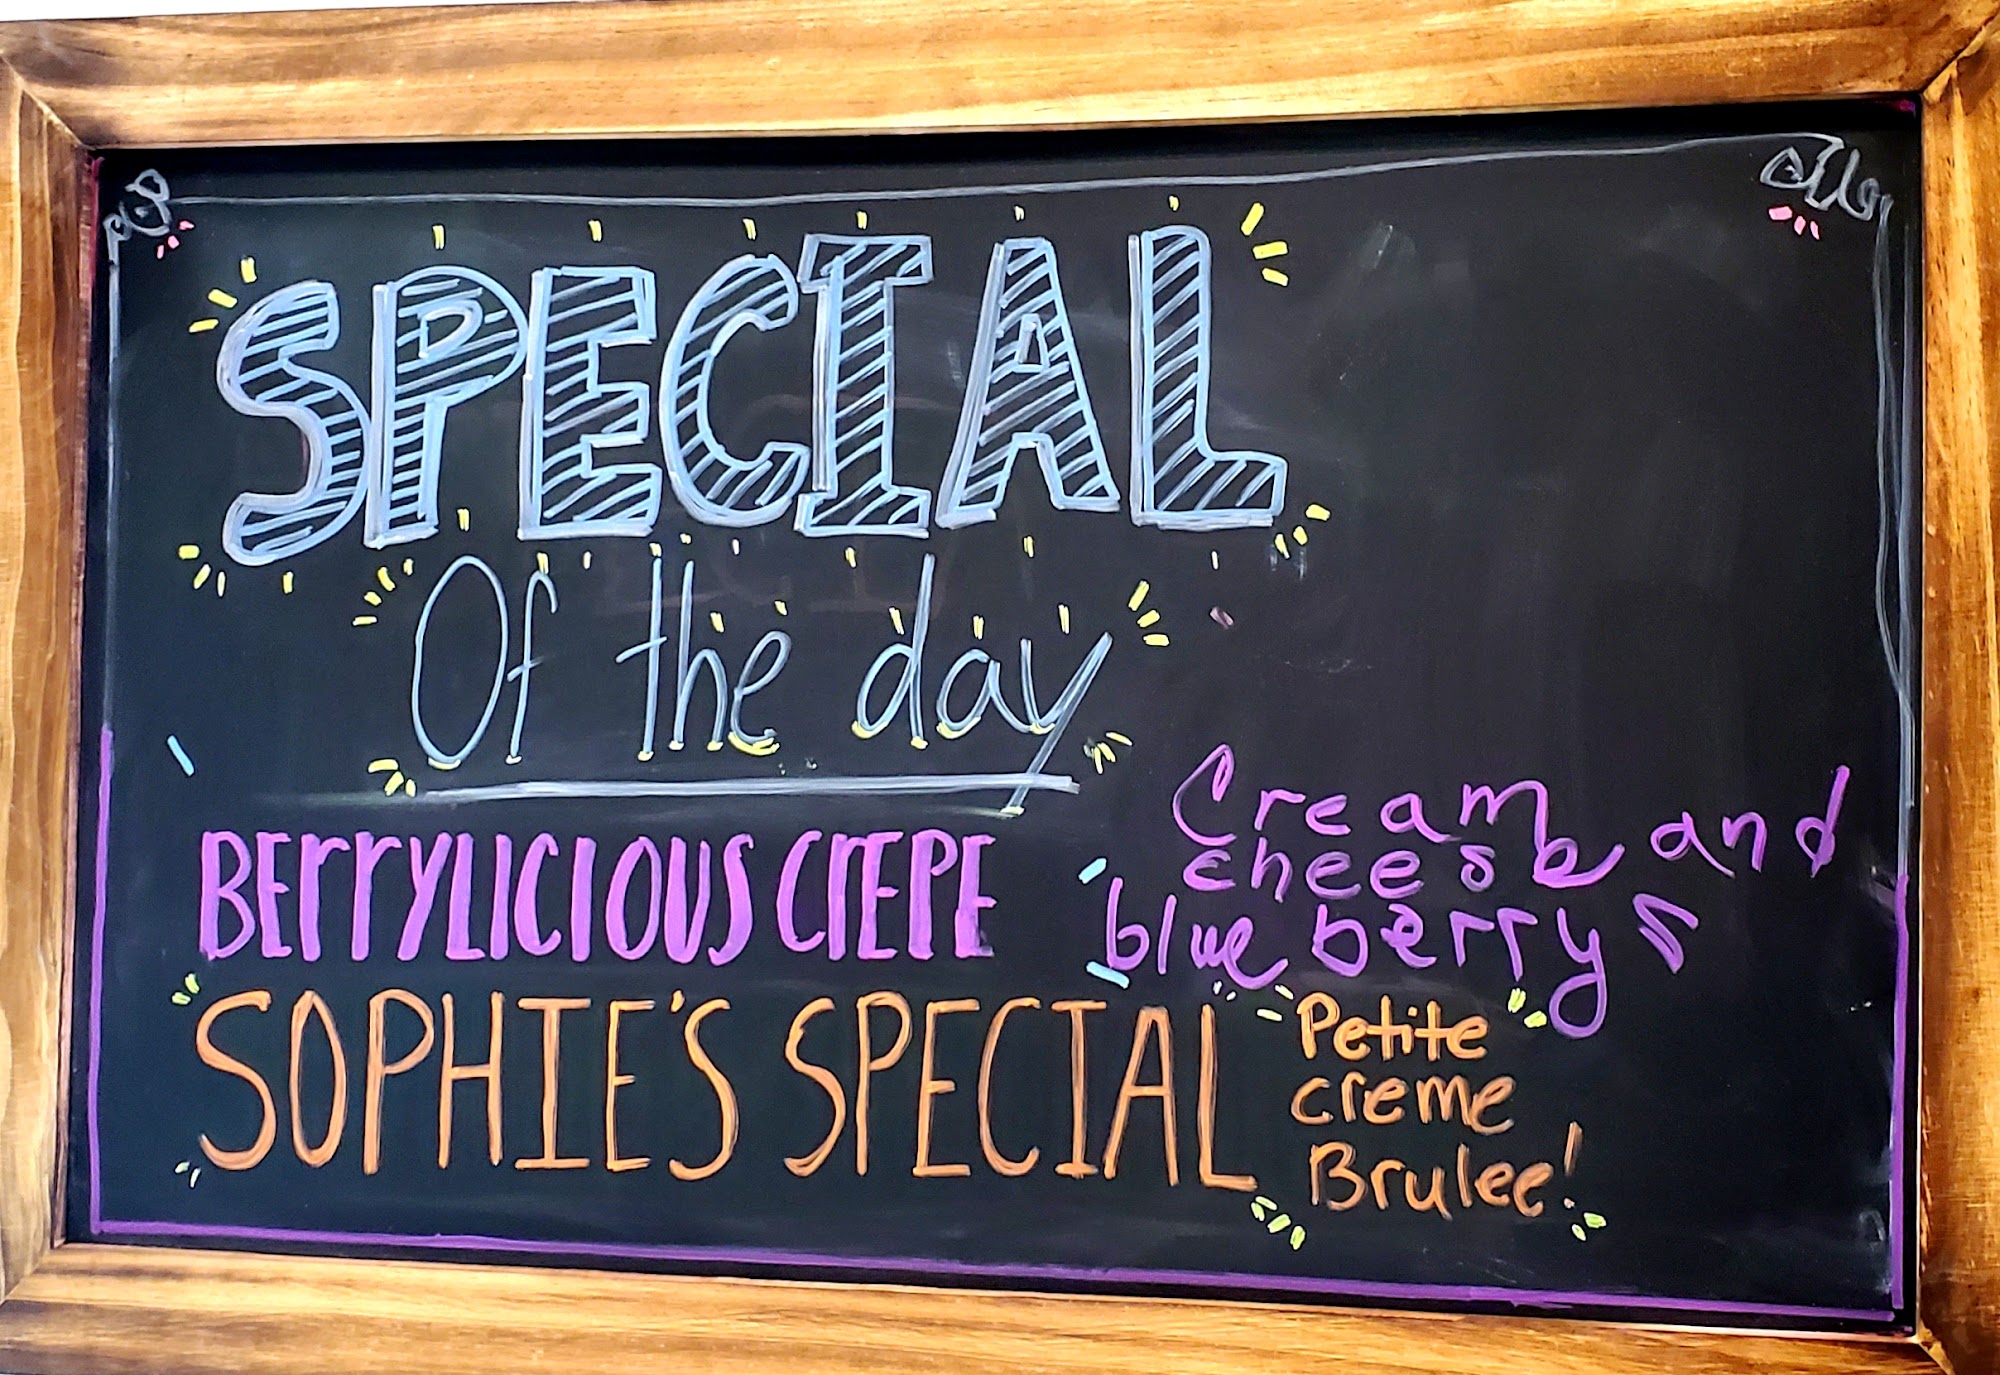 SPECIAL
Of the day
BErrYLICIOUS CrEPE
Cream
cheese and
blueberrys
SOPHIE'S SPECIAL
Petite
creme
Brulee!